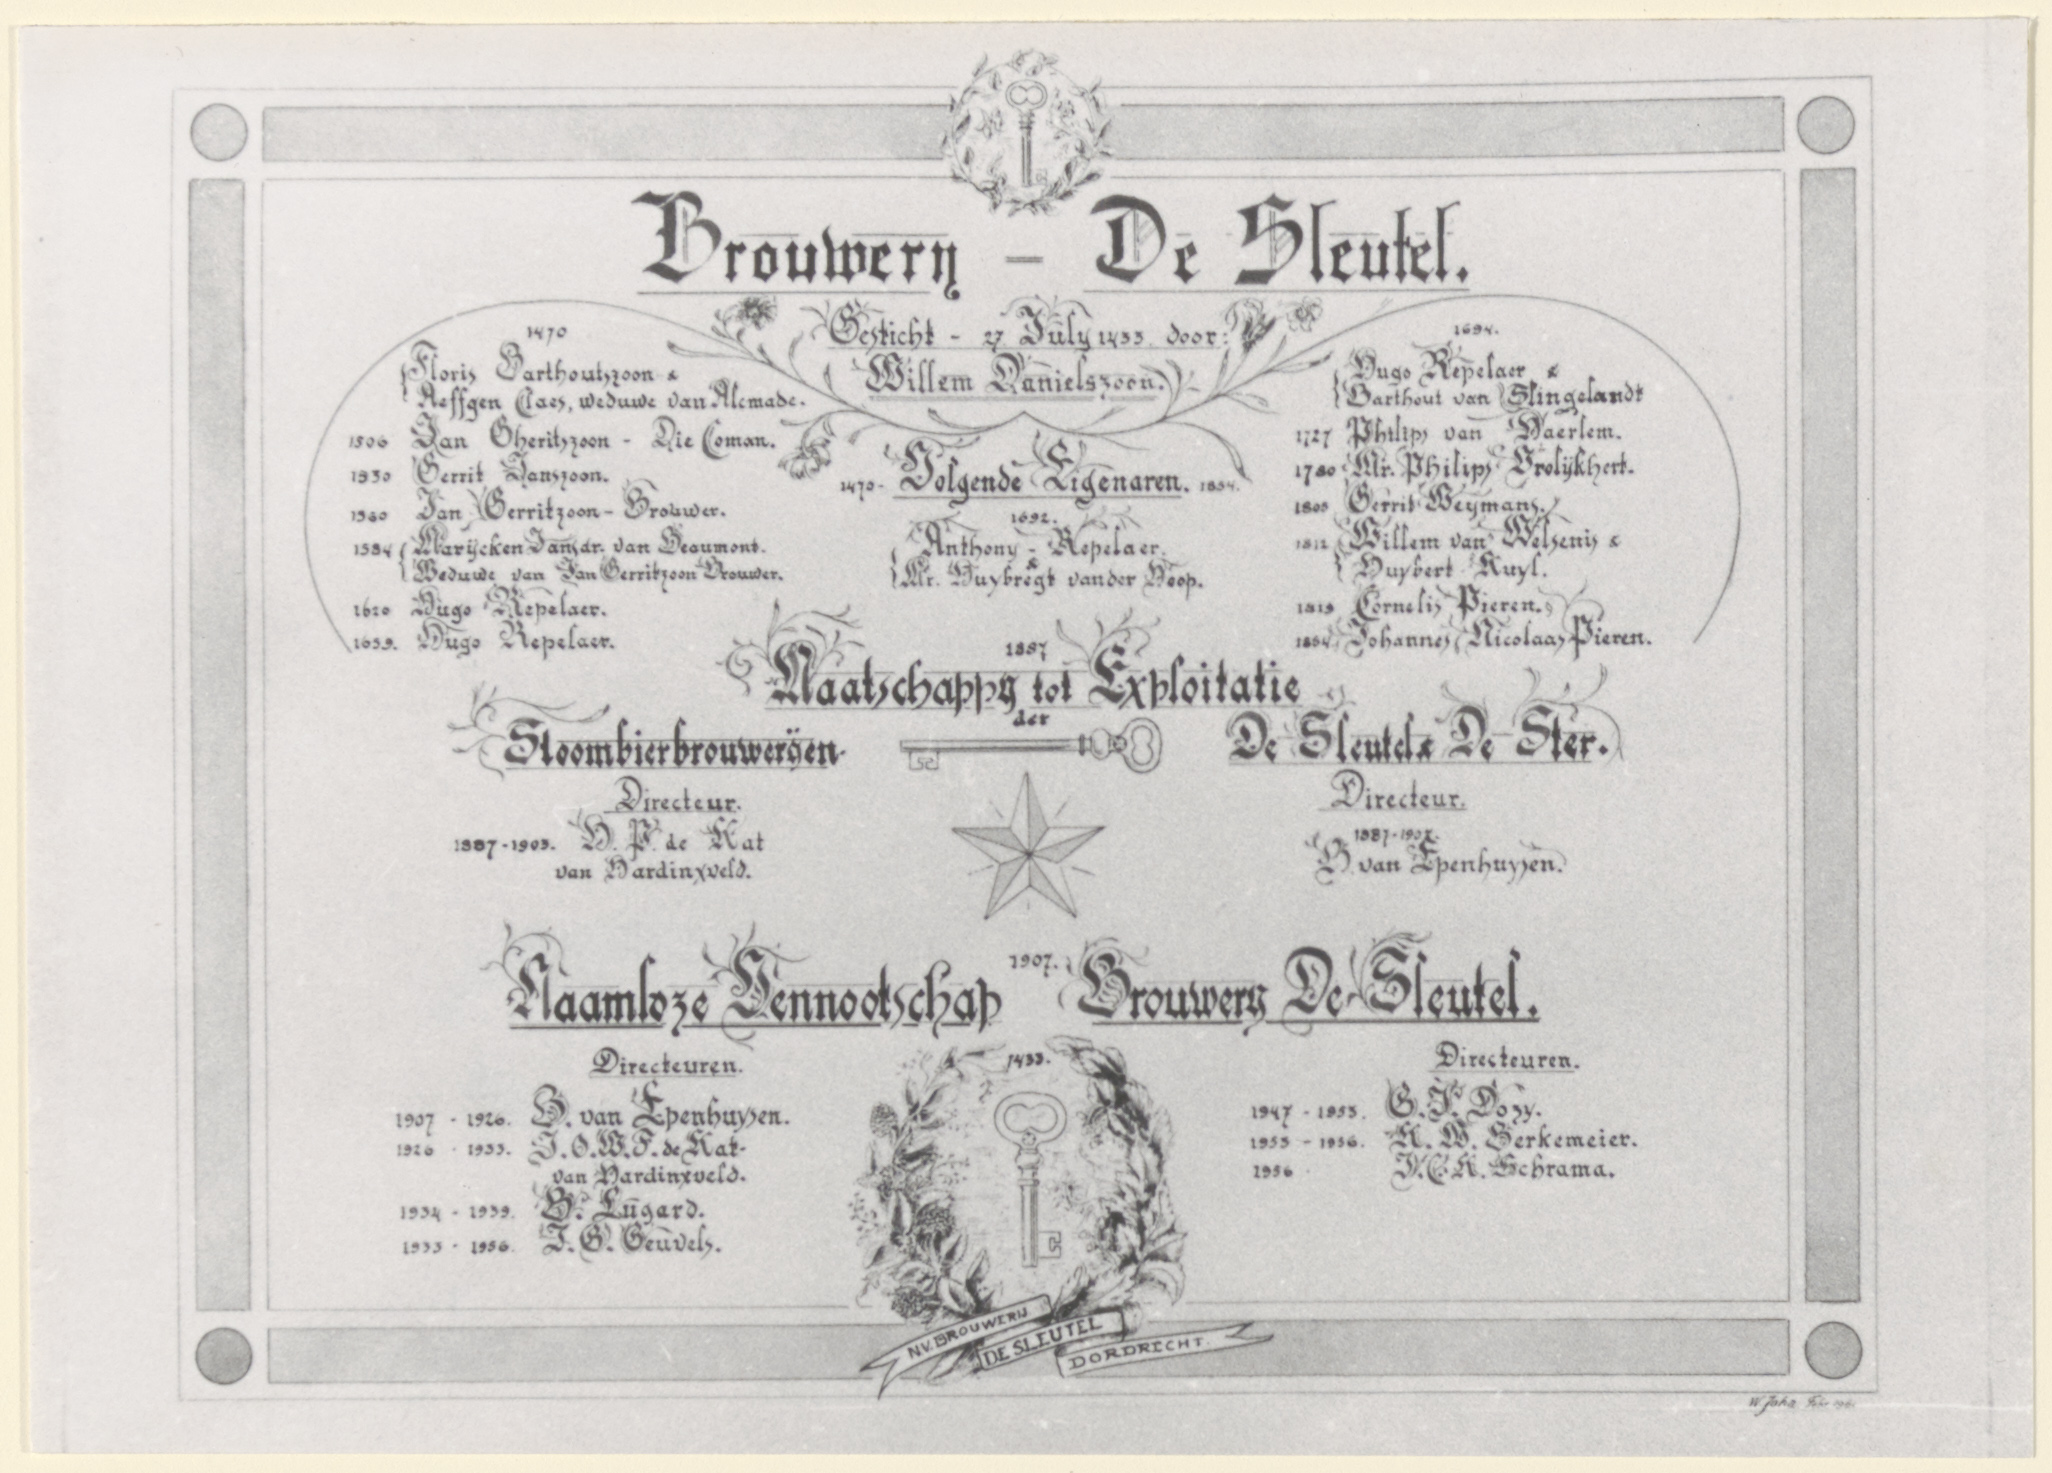 Brouwery - De Sleutel.
Gesticht - 27 July 1433. door:
Willem Danielszoon.
1470
Floris Barthoutszoon &
Aeffgen Claes, weduwe van Alcmade.
1506 Jan Gheritszoon - Die Coman.
1530 Gerrit Janszoon.
1560 Jan Gerritzoon - Brouwer.
1584 Marijcken Jansdr. van Beaumont.
Weduwe van Jan Gerritzoon Brouwer.
1620 Hugo Repelaer.
1659. Hugo Repelaer.
1470 - Volgende Eigenaren. 1854.
1692.
Anthony - Repelaer.
&
Mr. Huybregt vander Hoop.
1694.
Hugo Repelaer &
Barthout van Slingelandt
1727 Philips van Haerlem.
1780 Mr. Philips Vrolijkhert.
1805 Gerrit Weymans.
1812 Willem van Welsenis &
Huybert Kuyl.
Cornelis Pieren.
1854 Johannes Nicolaas Pieren.
1887
Maatschappy tot Exploitatie
der
Stoombierbrouwerÿen.
De Sleutel & De Ster.
Directeur.
1887-1903. H. P. de Kat
van Hardinxveld.
Directeur.
1887-1907.
B. van Epenhuysen.
1907.
Naamloze Vennootschap Brouwery De Sleutel.
Directeuren.
1907 - 1926. B. van Epenhuysen.
1926 - 1933. J.O.W.F. de Kat-
van Hardinxveld.
1934 - 1939. B. Lugard.
1933 - 1956. J. G. Geuvels.
Directeuren.
1947 - 1953. G. J. Dozy.
1953 - 1956. K. W. Berkemeier.
1956 Schrama.
1433.
N.V. BROUWERIJ
DE SLEUTEL
DORDRECHT.